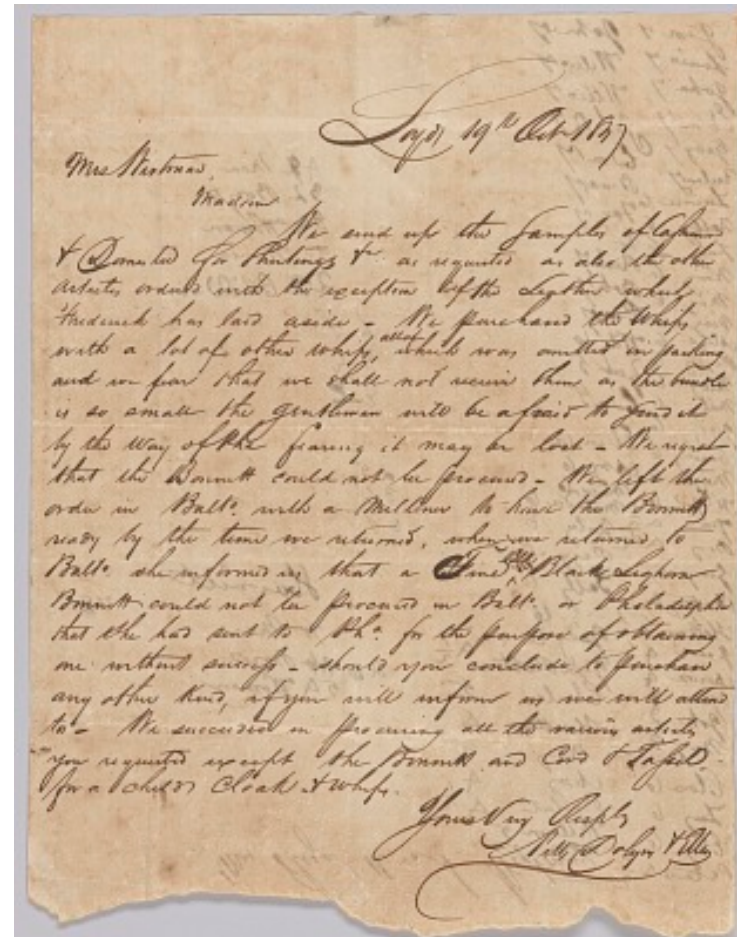 19th Oct 1837
Mrs
Madam
We send up the Samples of
& Domestic for & as requested as also the other
articles ordered with the exception of the which
Frederick has laid aside – We purchased the Whips
with a lot of other whips, which was omitted in packing
and we fear that we shall not receive them as the bundle
is so small the gentleman will be afraid to send it
by the way of Pha fearing it may be lost – We regret
that the Bonnett could not be procured – We left the
order in Balto. with a Milliner to have the Bonnett
ready by the time we returned, when we returned to
Balto. she informed us that a Fine Black Leghorn
Bonnett could not be procured in Balto. or Philadelphia
that she had sent to Pha. for the purpose of obtaining
one without success – should you conclude to purchase
any other Kind, if you will inform us we will attend
to – We succeeded in procuring all the various articles
you requested except the Bonnett and Cord & Tassel
for a childs Cloak & whips.
Yours Very Resply